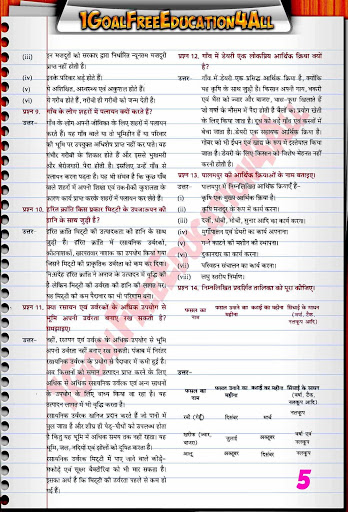 1GoalFreeEducation4All
(iii) इन मजदूरों को सरकार द्वारा निर्धारित न्यूनतम मजदूरी
प्राप्त नहीं होती है।
(iv) इनके परिवार बड़े होते हैं।
(v) ये अशिक्षित, अस्वस्थ एवं अकुशल होते हैं।
(vi) ये गरीब होते हैं, गरीबी ही गरीबी को जन्म देती है।
प्रश्न 9. गाँव के लोग शहरों में पलायन क्यों करते हैं?
उत्तर– गाँव के लोग अपनी जीविका के लिए शहरों में पलायन
करते हैं। वह गाँव वाले या तो भूमिहीन हैं या परिवार
की भूमि पर उपयुक्त अधिशेष प्राप्त नहीं कर पाते। यह
गंभीर गरीबी के शिकार होते हैं और इससे भुखमरी
और बेरोजगारी पैदा होती है। इसलिए उन्हें गाँव से
पलायन करना पड़ता है। यह भी संभव है कि कुछ गाँव
वाले शहरों में अपनी शिक्षा एवं तकनीकी कुशलता के
कारण कार्य प्राप्त कर शहरों में पलायन कर लेते हैं।
प्रश्न 10. हरित क्रांति किस प्रकार मिट्टी के उपजाऊपन की
हानि के साथ जुड़ी है?
उत्तर– हरित क्रांति मिट्टी की उत्पादकता की हानि के साथ
जुड़ी है। हरित क्रांति में रासायनिक उर्वरकों,
कीटनाशकों, खरपतवार नाशक का उपयोग किया गया
जिसने मिट्टी की प्राकृतिक उर्वरता को कम कर दिया।
निःसंदेह हरित क्रांति ने अनाज के उत्पादन में वृद्धि की
है लेकिन मिट्टी की उर्वरता की हानि की लागत पर।
यह मिट्टी की कम पैदावार का भी परिणाम बना।
प्रश्न 11. क्या रसायन एवं उर्वरकों के अधिक उपयोग से
भूमि अपनी उर्वरता बनाए रख सकती है?
समझाइए।
उत्तर– नहीं, रसायन एवं उर्वरकों के अधिक उपयोग से भूमि
अपनी उर्वरता नहीं बनाए रख सकती। पंजाब में निरंतर
रसायनिक उर्वरक के प्रयोग से पैदावार में कमी हुई है।
अब किसानों को समान उत्पादन प्राप्त करने के लिए
अधिक से अधिक रसायनिक उर्वरक एवं अन्य साधनों
के उपयोग के लिए बाध्य किया जा रहा है। यह
उत्पादन लागत में भी वृद्धि करता है।
रसायनिक उर्वरक खनिज प्रदान करते हैं जो पानी में
घुल जाता है और शीघ्र ही पेड़-पौधों को उपलब्ध होता
है किंतु यह भूमि में अधिक समय तक नहीं रहता। यह
भूमि, जल, नदियों एवं झीलों को दूषित करता है।
रसायनिक उर्वरक मिट्टी में पाए जाने वाले कीड़े-
मकोड़े एवं सूक्ष्म बैक्टीरिया को भी मार सकता है।
इसका अर्थ है कि मिट्टी की उर्वरता पहले से कम हो
गई है।
प्रश्न 12. गाँव में डेयरी एक लोकप्रिय आर्थिक क्रिया क्यों
है?
उत्तर– गाँव में डेयरी एक प्रसिद्ध आर्थिक क्रिया है, क्योंकि
यह कृषि के साथ जुड़ी है। किसान अपनी गाय, बकरी
एवं भैंस को ज्वार और बाजरा, घास-फूस खिलाते हैं
जो वर्षा के मौसम में पैदा होती है बैलों का प्रयोग खेती
के लिए किया जाता है। दूध को बड़े गाँव एवं कस्बों में
बेचा जाता है। डेयरी एक सहायक आर्थिक क्रिया है।
गोबर को भी ईंधन एवं खाद के रूप में इस्तेमाल किया
जाता है। डेयरी के लिए किसान को विशेष मेहनत नहीं
करनी होती है।
प्रश्न 13. पालमपुर की आर्थिक क्रियाओं के नाम बताइए।
उत्तर– पालमपुर में निम्नलिखित आर्थिक क्रियाएँ हैं–
(i) कृषि एक मुख्य आर्थिक क्रिया है।
(ii) कृषि मजदूर के रूप में कार्य करना।
(iii) दर्जी, धोबी, मोची, सुनार आदि का कार्य करना।
(iv) मुर्गीपालन एवं डेयरी का कार्य अपनाना
(v) गन्ने काटने की मशीन की स्थापना।
(vi) दुकानदार का कार्य करना।
(vii) परिवहन संचालन का कार्य करना।
(viii) लघु स्तरीय निर्माण।
प्रश्न 14. निम्नलिखित प्रदर्शित तालिका को पूरा कीजिए।
फसल का नाम फसल उगाने का महीना कटाई का महीना सिंचाई के साधन (वर्षा, टैंक, नलकूप आदि)
उत्तर–
फसल का नाम फसल उगाने का महीना कटाई का महीना सिंचाई के साधन (वर्षा, टैंक, नलकूप आदि)
रबी (गेहूँ) दिसंबर मार्च नलकूप
खरीफ (ज्वार, बाजरा) जुलाई अक्टूबर वर्षा एवं नलकूप
आलू अक्टूबर दिसंबर नलकूप
5